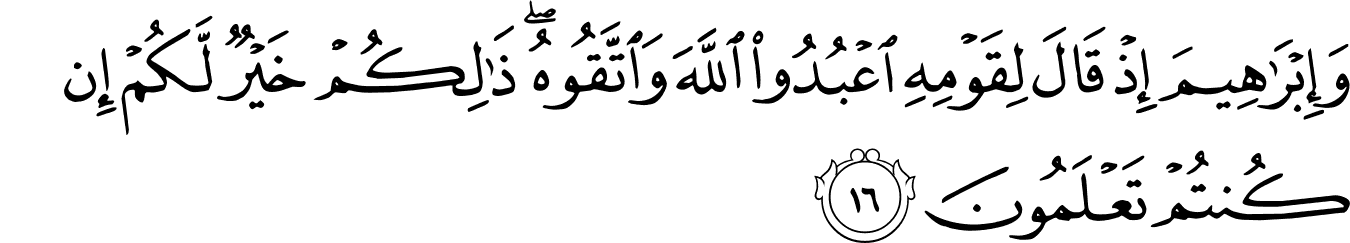 وَإِبْرَٰهِيمَ إِذْ قَالَ لِقَوْمِهِ ٱعْبُدُوا۟ ٱللَّهَ وَٱتَّقُوهُ ۖ ذَٰلِكُمْ خَيْرٌ لَّكُمْ إِن
كُنتُمْ تَعْلَمُونَ ١٦